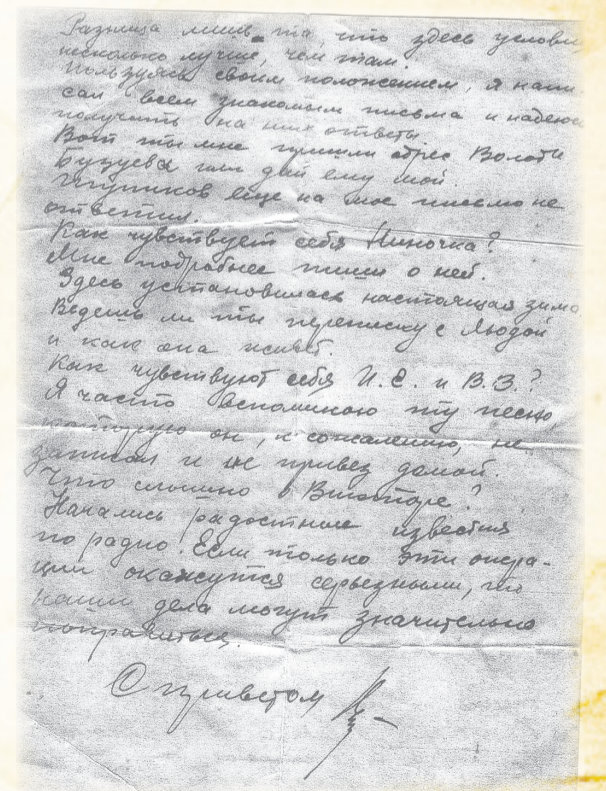 Разница лишь та, что здесь условия
несколько лучше, чем там.
Пользуясь своим положением, я напи-
сал всем знакомым письма и надеюсь
получить на них ответы
Вот ты мне пришли адрес Володи
Бузуева или дай ему мой.
еще на мое письмо не
ответил.
Как чувствует себя Ниночка?
Мне подробнее пиши о ней.
Здесь установилась настоящая зима
Ведешь ли ты переписку с Людой
и как она живет.
Как чувствуют себя И.Е. и В.З.?
Я часто вспоминаю ту песню,
которую он, к сожалению, не
записал и не привез домой.
Что слышно о Викторе?
Начались радостные известия
по радио. Если только эти опера-
ции окажутся серьезными, то
наши дела могут значительно
поправиться.
С приветом